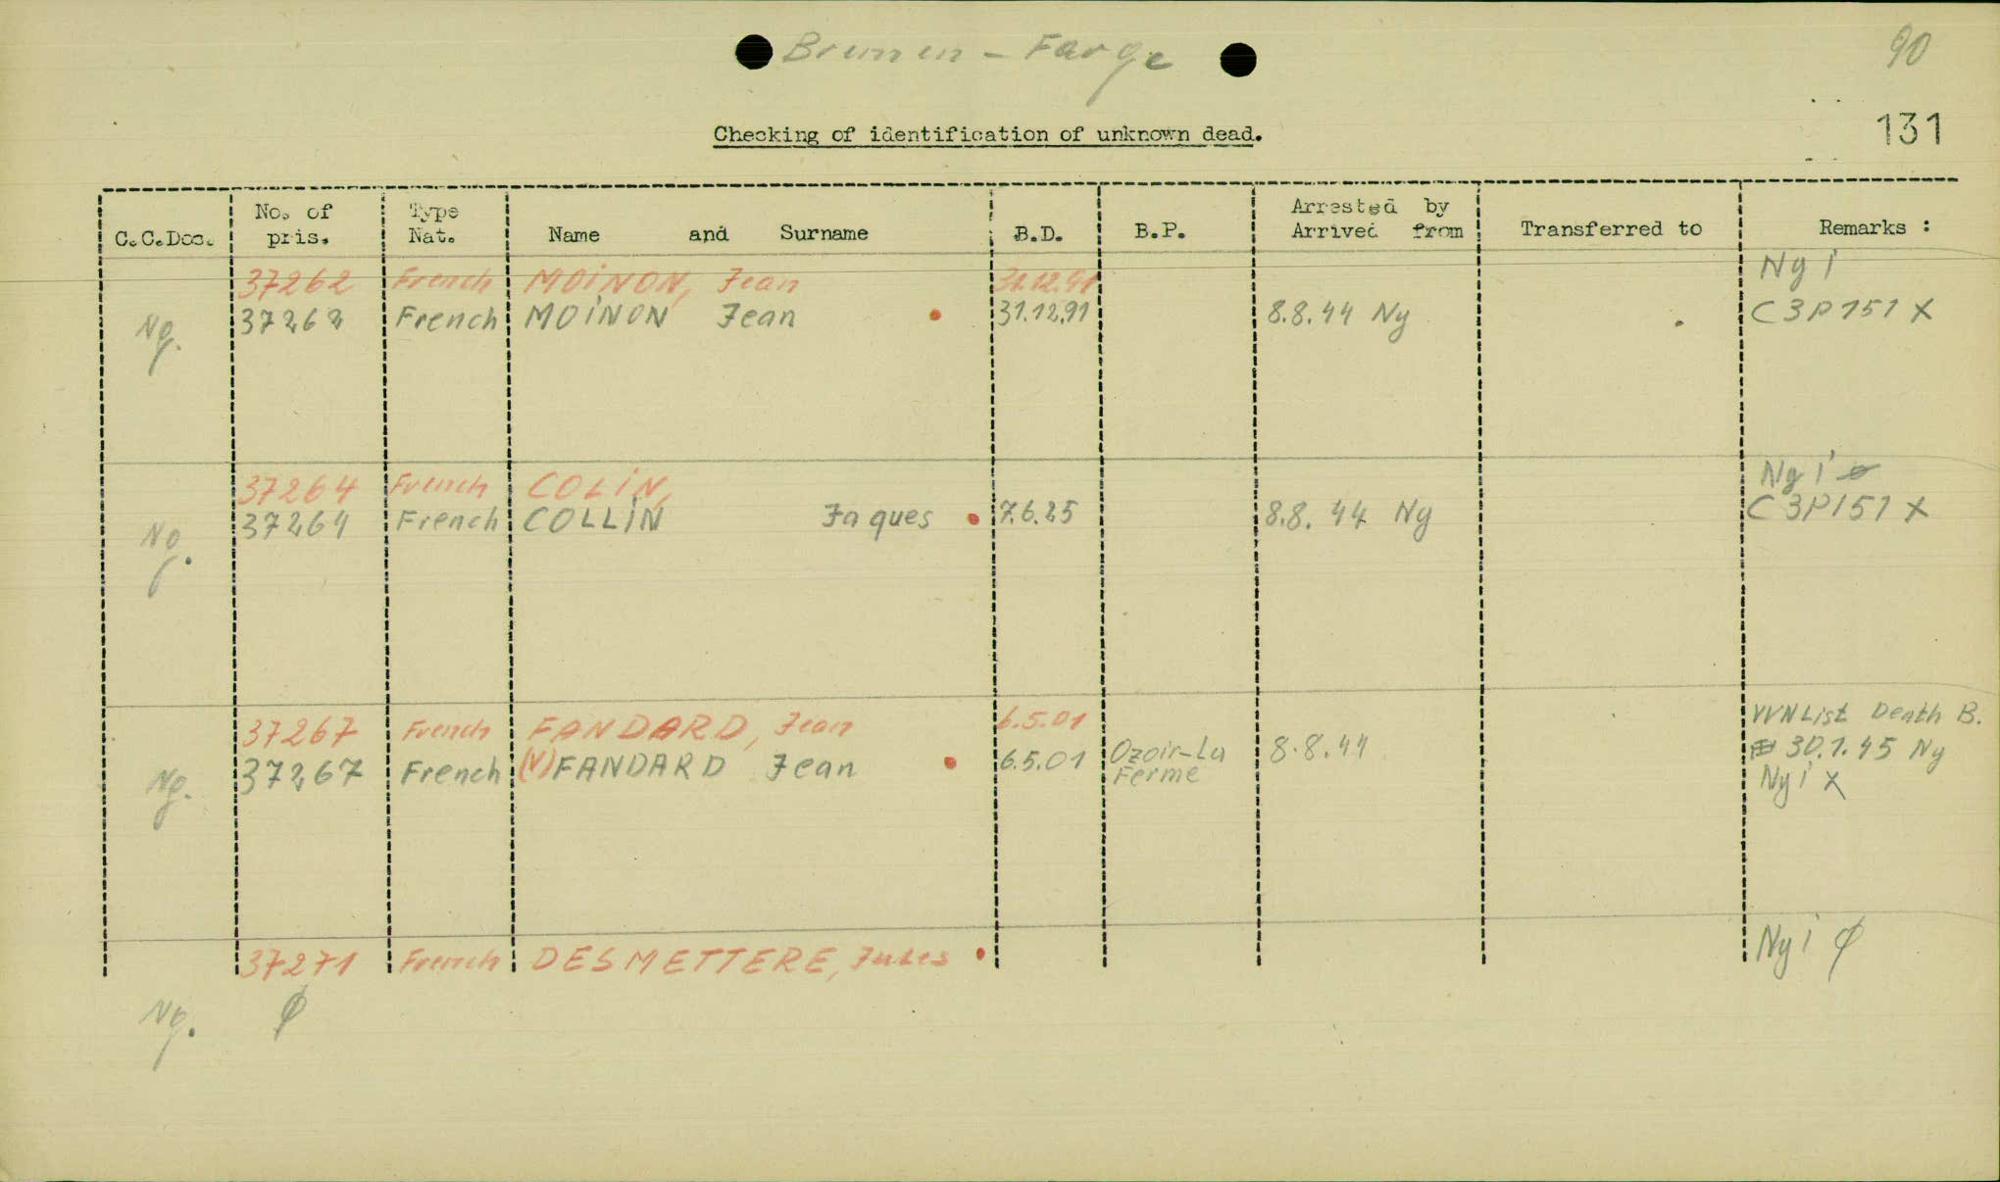 Bremen - Farge
90
Checking of identification of unknown dead.
131
C.C.Doc. No. of pris. Type Nat. Name and Surname B.D. B.P. Arrested by Arrived from Transferred to Remarks :
37262 French MOINON, Jean 31.12.91 Ny i
Ng. 37262 French MOINON Jean 31.12.91 8.8.44 Ny C3P151 X
37264 French COLIN, Ny i
Ng. 37264 French COLLIN Jaques 7.6.25 8.8.44 Ny C3P151 X
37267 French FANDARD, Jean 6.5.01 VVN List Death B.
Ng. 37267 French (V)FANDARD Jean 6.5.01 Ozoir-La Ferme 8.8.44 30.1.45 Ny
Ny i X
37271 French DESMETTERE, Jules Ny i ø
Ng. ø